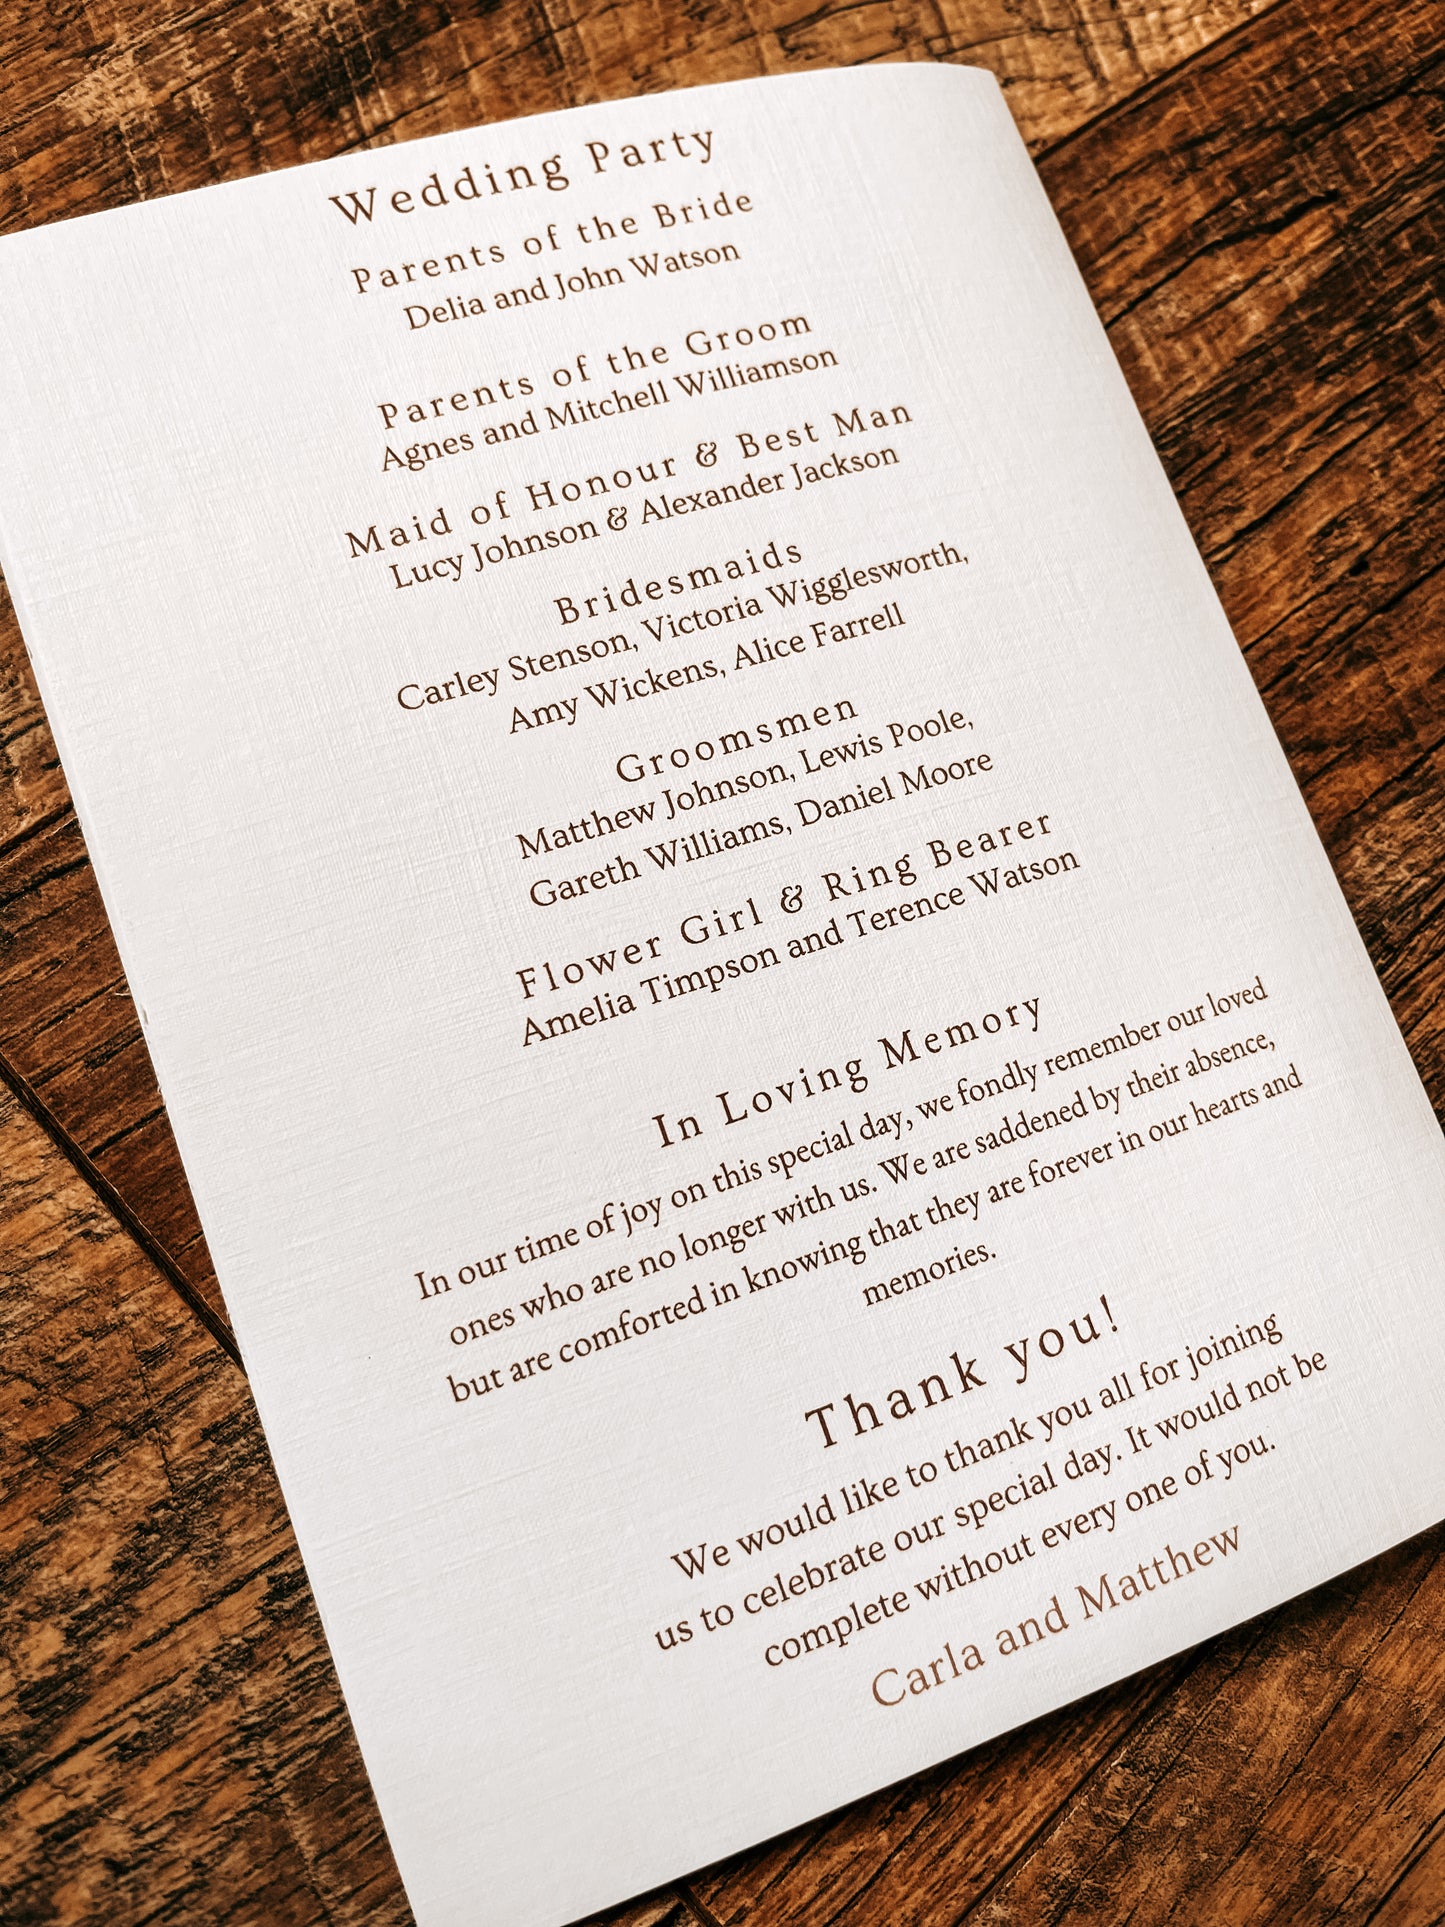 Wedding Party
Parents of the Bride
Delia and John Watson
Parents of the Groom
Agnes and Mitchell Williamson
Maid of Honour & Best Man
Lucy Johnson & Alexander Jackson
Bridesmaids
Carley Stenson, Victoria Wigglesworth,
Amy Wickens, Alice Farrell
Groomsmen
Matthew Johnson, Lewis Poole,
Gareth Williams, Daniel Moore
Flower Girl & Ring Bearer
Amelia Timpson and Terence Watson
In Loving Memory
In our time of joy on this special day, we fondly remember our loved
ones who are no longer with us. We are saddened by their absence,
but are comforted in knowing that they are forever in our hearts and
memories.
Thank you!
We would like to thank you all for joining
us to celebrate our special day. It would not be
complete without every one of you.
Carla and Matthew